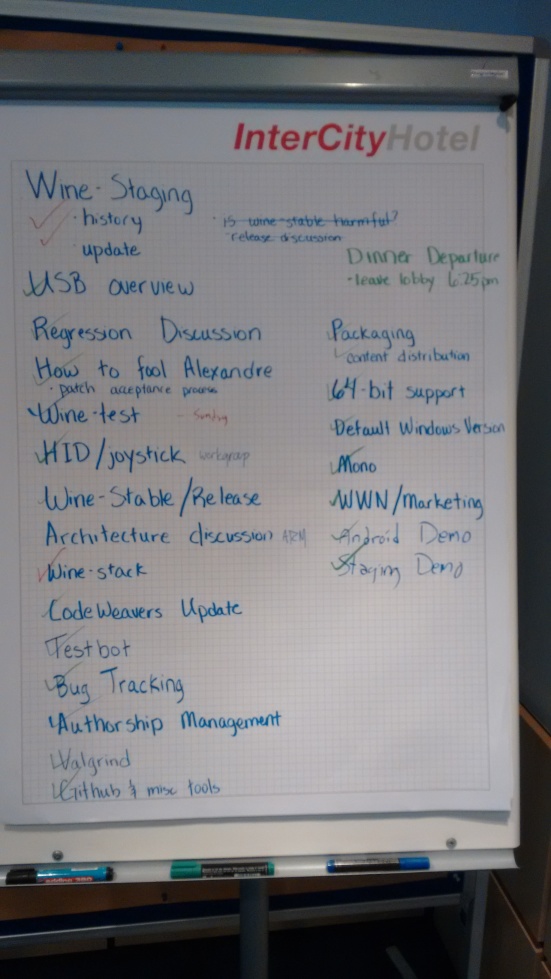 InterCityHotel
Wine-Staging
· history
· is wine-stable harmful?
release discussion
update
Dinner Departure
· leave lobby 6:25pm
USB overview
Regression Discussion
How to fool Alexandre
· patch acceptance process
Wine-test
- Sunday
HID/joystick workgroup
Wine-Stable/Release
Architecture discussion ARM
Wine-stack
CodeWeavers Update
Testbot
Bug Tracking
Authorship Management
Valgrind
Github & misc tools
Packaging
content distribution
64-bit support
Default Windows Version
Mono
WWN/Marketing
Android Demo
Staging Demo